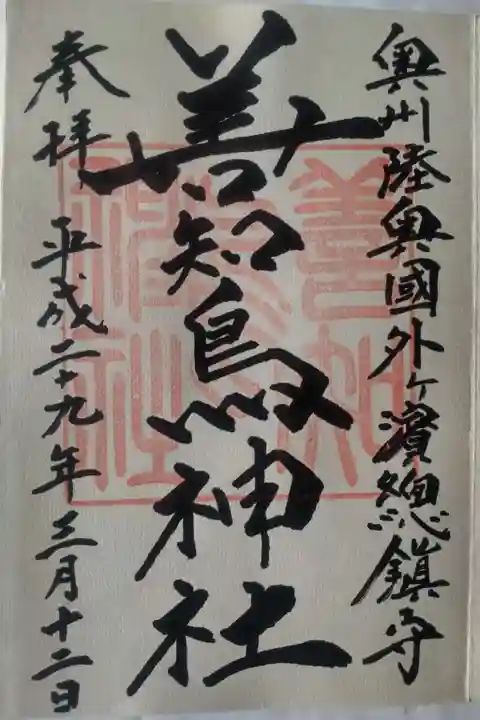 奥州陸奥國外ヶ濱總鎮守
善知鳥神社
奉拝 平成二十九年三月十二日
善知鳥神社